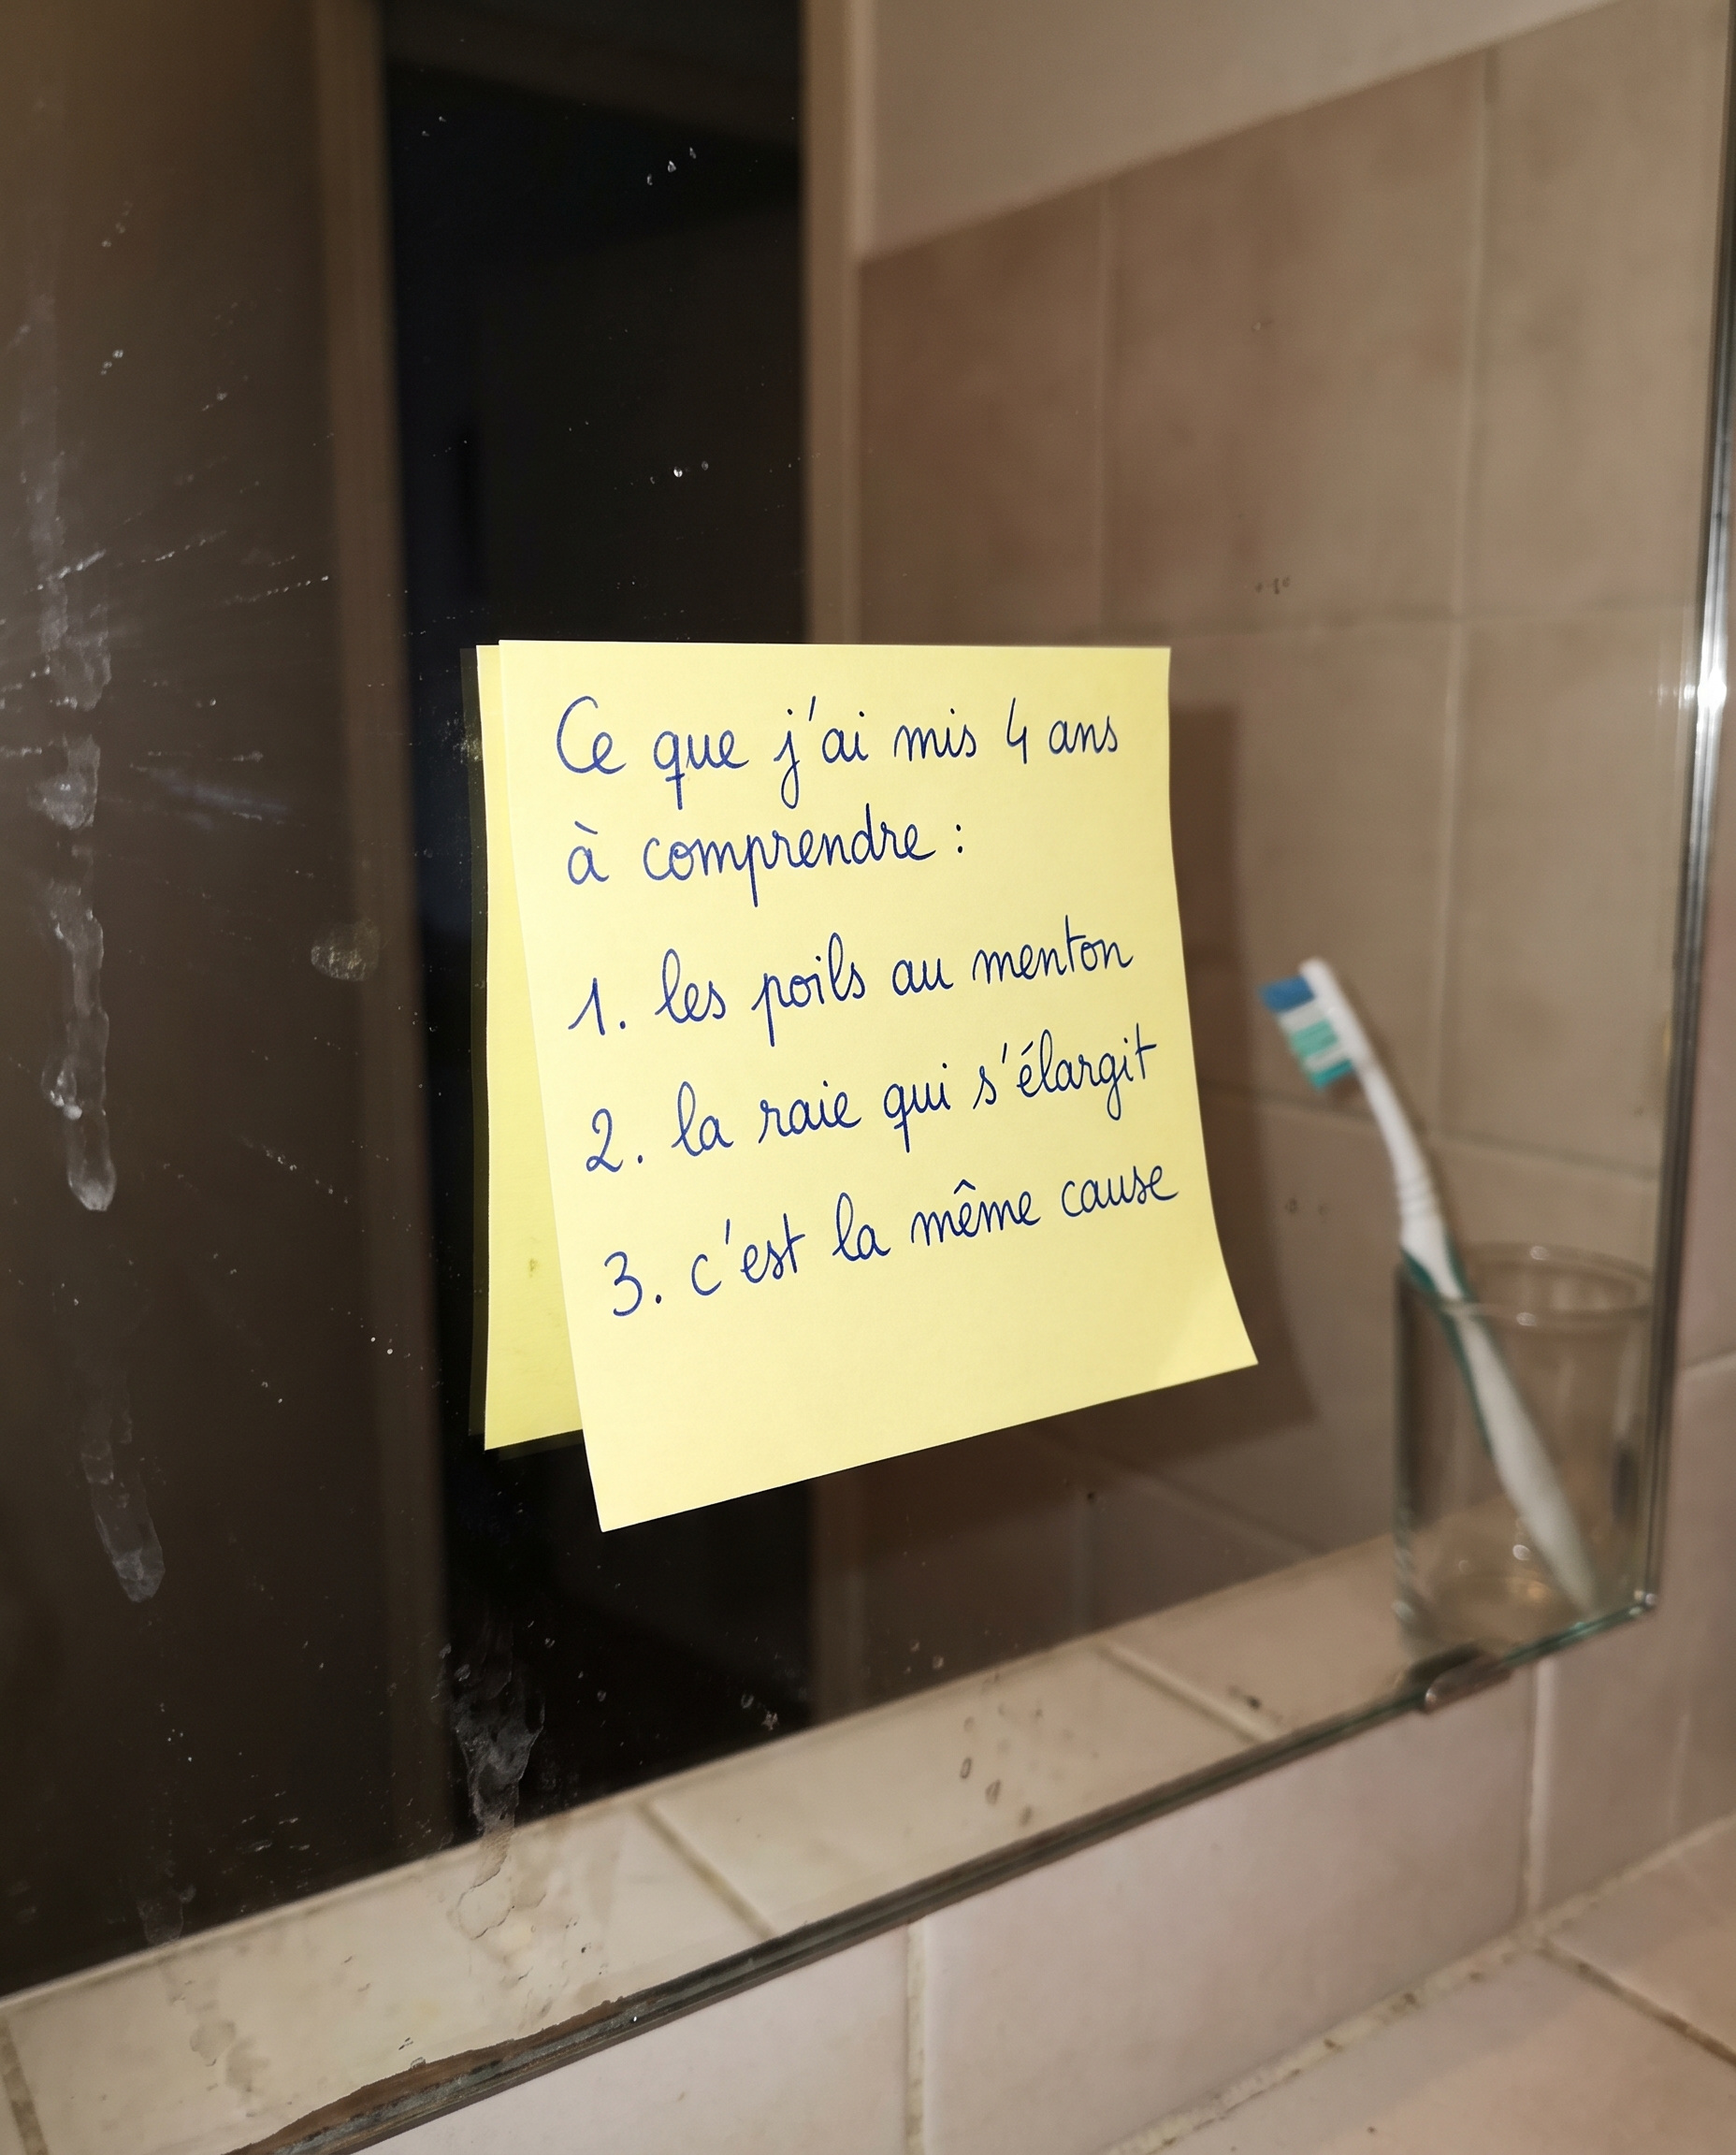 Ce que j'ai mis 4 ans
à comprendre :
1. les poils au menton
2. la raie qui s'élargit
3. c'est la même cause